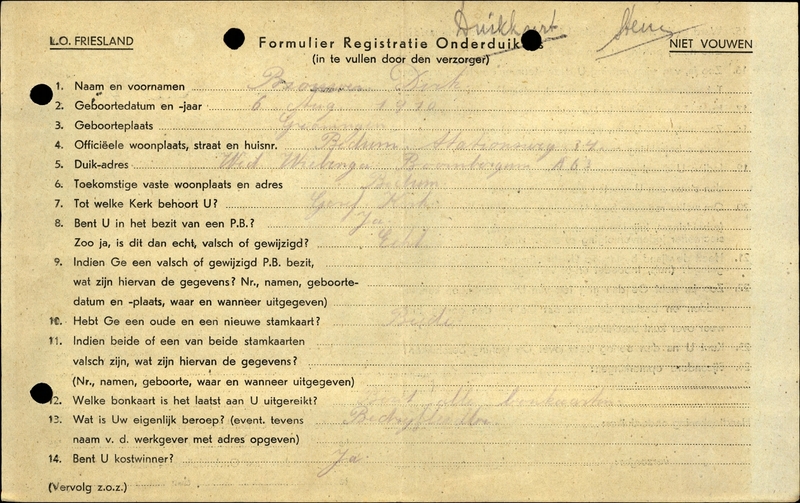 Duikkaart
L.O. FRIESLAND
Formulier Registratie Onderduikers
NIET VOUWEN
(in te vullen door den verzorger)
1. Naam en voornamen Dirk
2. Geboortedatum en -jaar 6 Aug 1910
3. Geboorteplaats Groningen
4. Officiëele woonplaats, straat en huisnr. Bedum Stationsweg 34
5. Duik-adres Wed Wielenga Boornbergum A63
6. Toekomstige vaste woonplaats en adres Bedum
7. Tot welke Kerk behoort U? Geref Kerk
8. Bent U in het bezit van een P.B.? Ja
Zoo ja, is dit dan echt, valsch of gewijzigd? Echt
9. Indien Ge een valsch of gewijzigd P.B. bezit,
wat zijn hiervan de gegevens? Nr., namen, geboorte-
datum en -plaats, waar en wanneer uitgegeven)
10. Hebt Ge een oude en een nieuwe stamkaart? Beide
11. Indien beide of een van beide stamkaarten
valsch zijn, wat zijn hiervan de gegevens?
(Nr., namen, geboorte, waar en wanneer uitgegeven)
12. Welke bonkaart is het laatst aan U uitgereikt? alle bonkaarten
13. Wat is Uw eigenlijk beroep? (event. tevens
naam v. d. werkgever met adres opgeven)
14. Bent U kostwinner? Ja
(Vervolg z.o.z.)